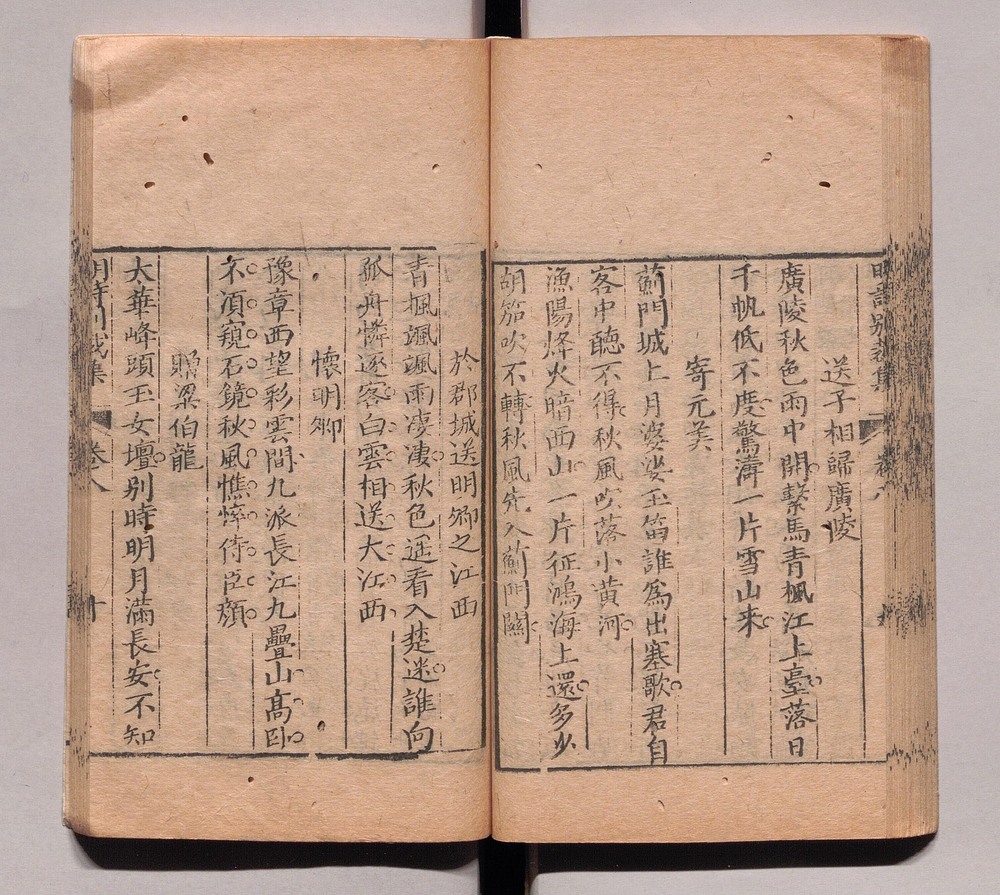 明詩別裁集
卷八
送子相歸廣陵
廣陵秋色雨中開繫馬青楓江上臺落日
千帆低不度驚濤一片雪山來
寄元美
薊門城上月婆娑玉笛誰為出塞歌君自
客中聽不得秋風吹落小黃河
漁陽烽火暗西山一片征鴻海上還多少
胡笳吹不轉秋風先入薊門關
於郡城送明卿之江西
青楓颯颯雨淒淒秋色遙看入楚迷誰向
孤舟憐逐客白雲相送大江西
懷明卿
豫章西望彩雲間九派長江九疊山高臥
不須窺石鏡秋風憔悴侍臣顏
贈梁伯龍
太華峰頭玉女壇別時明月滿長安不知
明詩別裁集
卷八
十